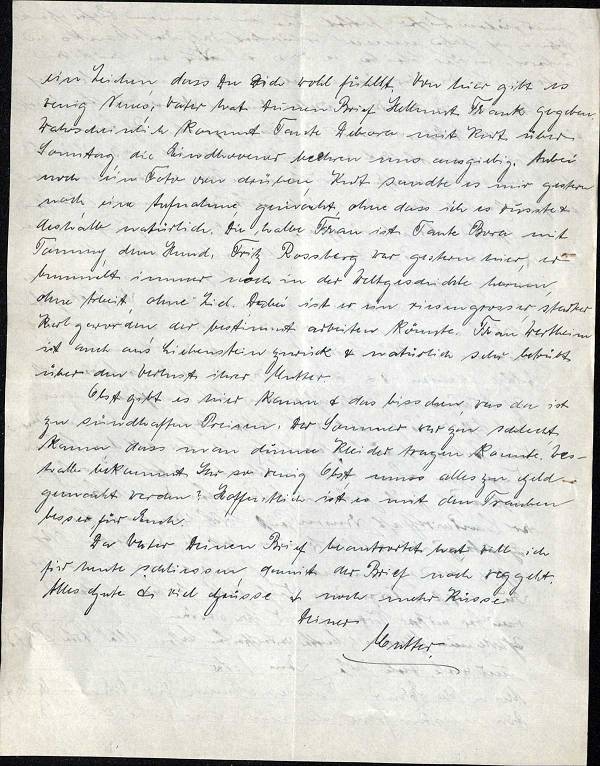 ein Zeichen dass Du Dich wohl fühlst. Von hier gibt es
wenig Neues, Vater hat Deinen Brief Hellmut Frank gegeben
Wahrscheinlich kommt Tante Debora mit Kurt über
Sonntag die Eindhovener beehren uns ausgiebig. Anbei
noch ein Foto von drüben Kurt sandte es mir gestern
noch eine Aufnahme gemacht, ohne dass ich es wusste &
deshalb natürlich. Die halbe Frau ist Tante Bora mit
Tommy, dem Hund. Fritz Rossberg war gestern hier, er
bummelt immer noch in der Weltgeschichte herum,
ohne Arbeit, ohne Ziel. Dabei ist er ein riesengrosser starker
Kerl geworden der bestimmt arbeiten könnte. Frau Wertheim
ist auch aus Lichenstein zurück & natürlich sehr betrübt
über den Verlust ihrer Mutter.
Obst gibt es hier kaum & das bisschen was da ist
zu sündhaften Preisen. Der Sommer war zu schlecht
kaum dass man dünne Kleider tragen konnte. Wes-
halb bekommt Ihr so wenig Obst muss alles zu Geld
gemacht werden? Hoffentlich ist es mit den Trauben
besser für Euch.
Da Vater Deinen Brief beantwortet hat will ich
für heute schliessen damit der Brief noch weggeht.
Alles Gute & viel Grüsse & noch mehr Küsse
Deiner
Mutter.